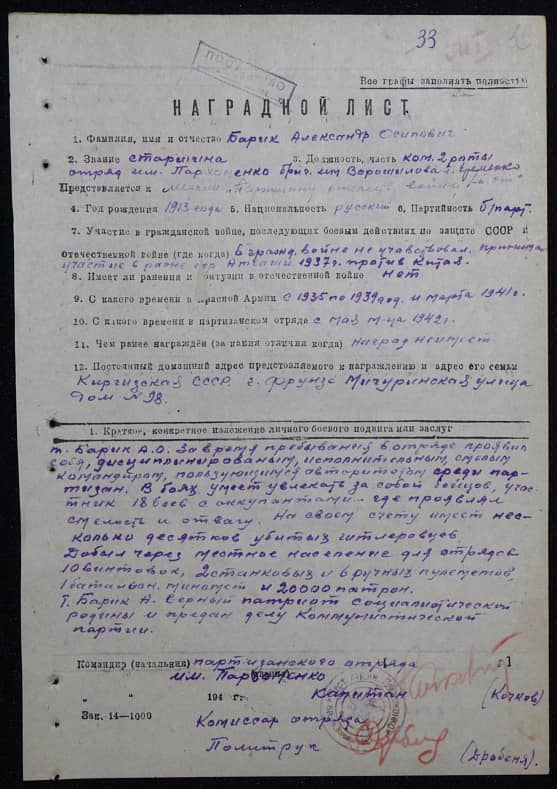 33
Все графы заполнять полностью
НАГРАДНОЙ ЛИСТ
1. Фамилия, имя и отчество Барик Александр Осипович
2. Звание старшина 3. Должность, часть ком. 2 роты
отряд им. Пархоменко бриг. им Ворошилова
Представляется к медали "Партизану отечеств. войны
4. Год рождения 1913 года 5. Национальность русский 6. Партийность б/парт.
7. Участие в гражданской войне, последующих боевых действиях по защите СССР и
отечественной войне (где когда) В гражд. войне не участвовал. принимал
участие в 1937г. против Китая.
8. Имеет ли ранения и контузии в отечественной войне Нет
9. С какого времени в Красной Армии с 1935 по 1939 год. и марта 1941 г.
10. С какого времени в партизанском отряде с мая м-ца 1942 г.
11. Чем ранее награждён (за какия отличия когда) наград не имеет
12. Постоянный домашний адрес представляемого к награждению и адрес его семьи
Киргизская ССР. г. Фрунзе Мичуринская улица
дом № 98.
1. Краткое, конкретное изложение личного боевого подвига или заслуг
т. Барик А.О. За время пребывания в отряде проявил
себя, дисциплинированым, исполнительным, смелым
командиром, пользующимся авторитетом среди пар-
тизан. В боях умеет увлекать за собой бойцов, учас-
тник 18 боев с оккупантами - где проявлял
смелость и отвагу. На своем счету имеет нес-
колько десятков убитых гитлеровцев.
Добыл через местное население для отряда
10 винтовок, 2 станковых и 6 ручных пулеметов,
1 батальон. миномет и 20000 патрон.
Т. Барик А. верный патриот социалистической
родины и предан делу Коммунистической
партии.
Командир (начальник) партизанского отряда
им. Пархоменко
194 г. Капитан (Кочков)
Зак. 14—1000 Комиссар отряда
Политрук (Дробеня)